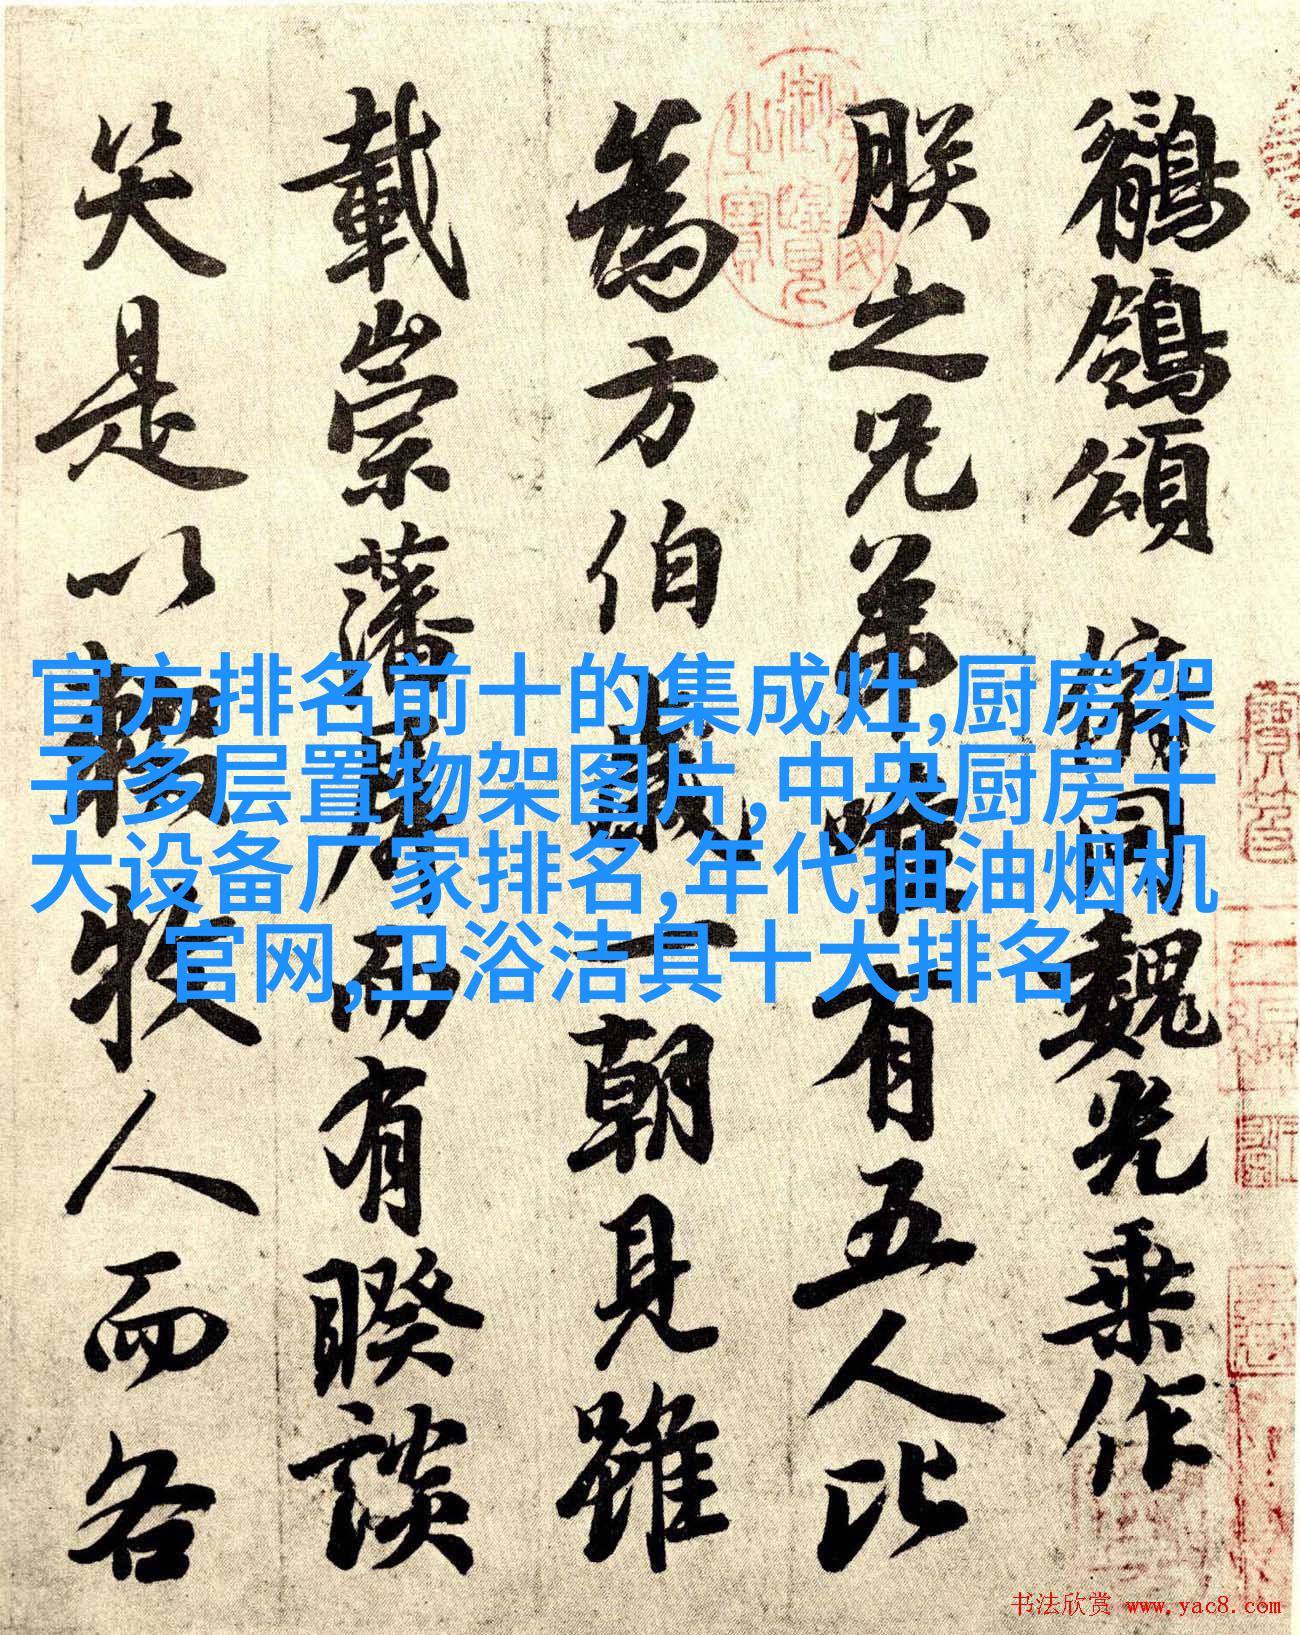 鶺鴒頌 俯同魏光乘作
朕之兄弟唯有五人比
為方伯歲一朝見雖
載崇藩屏而有睽談
笑是以輟牧人而各
官方排名前十的集成灶,厨房架
子多层置物架图片,中央厨房十
大设备厂家排名,年代抽油烟机
官网,卫浴洁具十大排名
书法欣赏 www.yac8.com